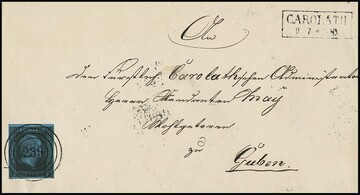 CAROLATH
9 7
An
den Fürstlich Carolathschen Administrator
Herrn Mandanten May
Wohlgeboren
zu
Guben.
238